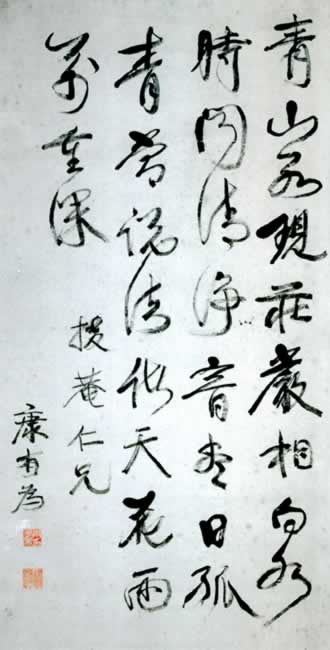 青山現莊嚴相白水
時聞清淨音日孤
青說法天花雨
萬重深
援菴仁兄
康有為